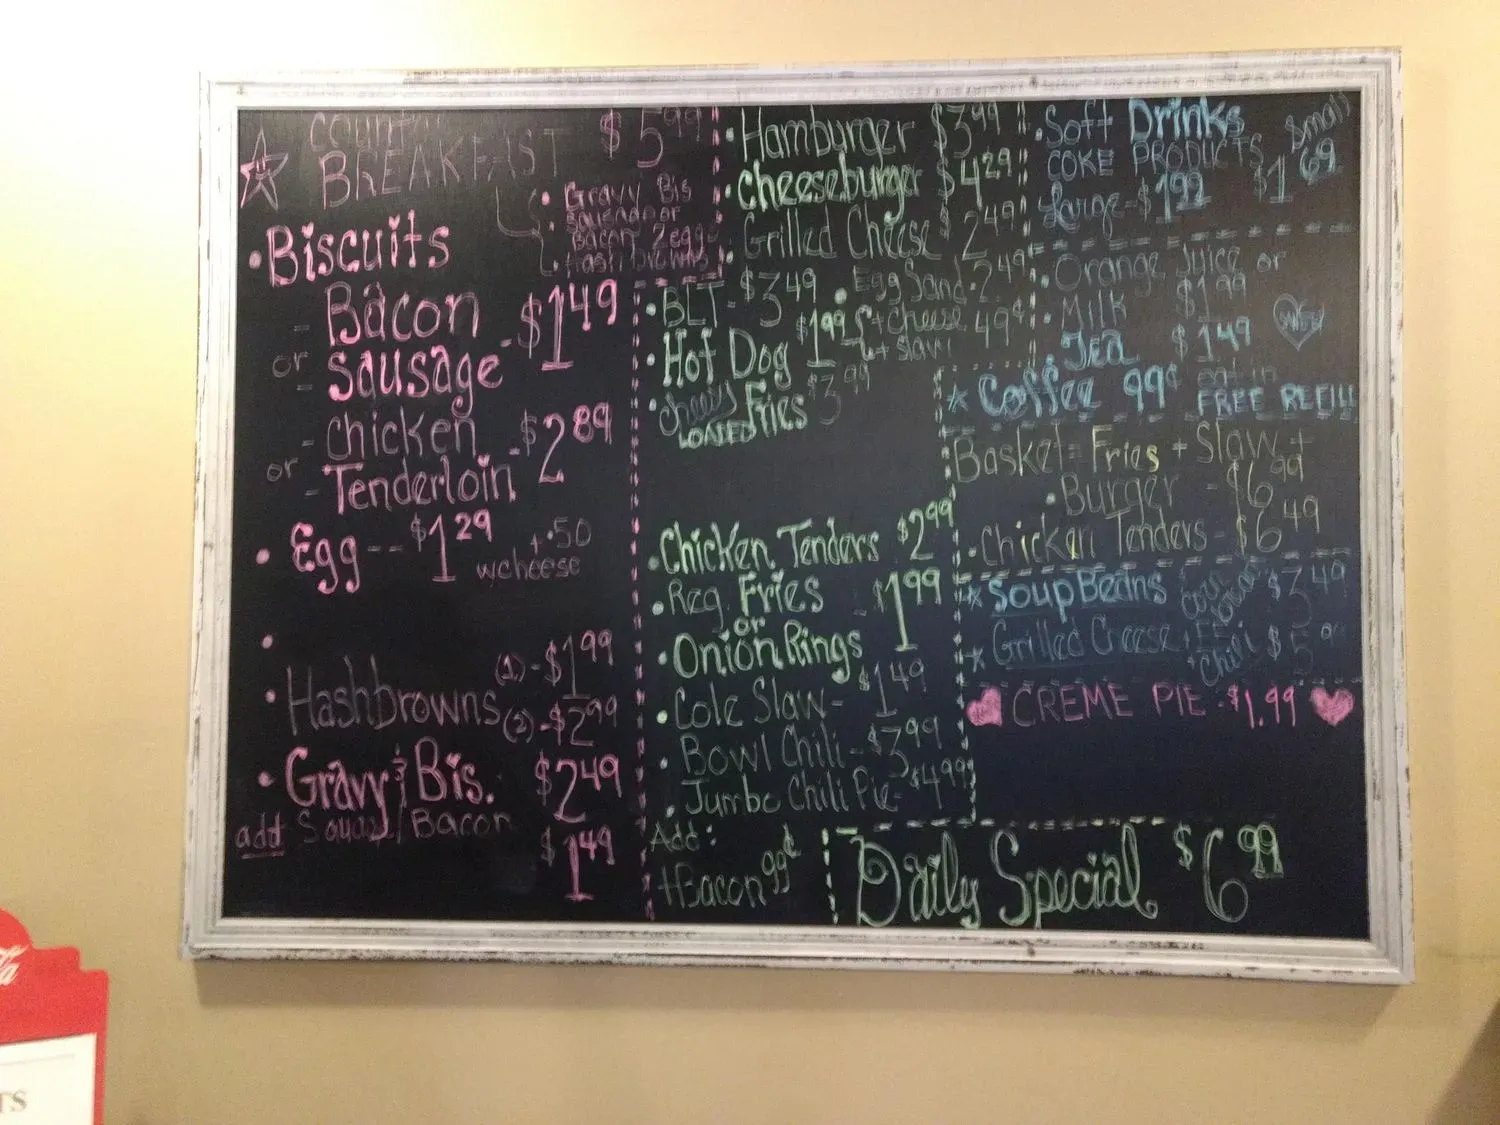 COUNTRY
BREAKFAST $5.99
• Gravy Bis
sausage or
Bacon 2 egg
Hash browns
• Biscuits
- Bacon
or - Sausage - $1.49
- Chicken
or - Tenderloin - $2.89
• Egg -- $1.29 +.50
w cheese
•
• Hashbrowns (1) - $1.99
(2) - $2.99
• Gravy & Bis. $2.49
add Sausg/Bacon
$1.49
• Hamburger $3.99
• Cheeseburger $4.29
• Grilled Cheese $2.49
• BLT - $3.49 • Egg Sand. 2.49
• Hot Dog $1.99 + cheese 49¢
+ slaw
• Cheesy Fries $3.99
LOADED
• Chicken Tenders $2.99
• Reg. Fries - $1.99
or
• Onion Rings
• Cole Slaw - $1.49
• Bowl Chili - $3.99
• Jumbo Chili Pie - $4.99
Add:
+Bacon 99¢
• Soft Drinks Small
COKE PRODUCTS $1.69
Large - $1.99
• Orange Juice or
• Milk $1.99
• Tea $1.49
* Coffee 99¢ eat in
FREE REFILL
Basket = Fries + Slaw +
• Burger - $6.99
• Chicken Tenders - $6.49
* Soup Beans Corn bread $3.49
* Grilled Cheese Chili $5.99
CREME PIE - $1.99
Daily Special $6.99
Ca
TS